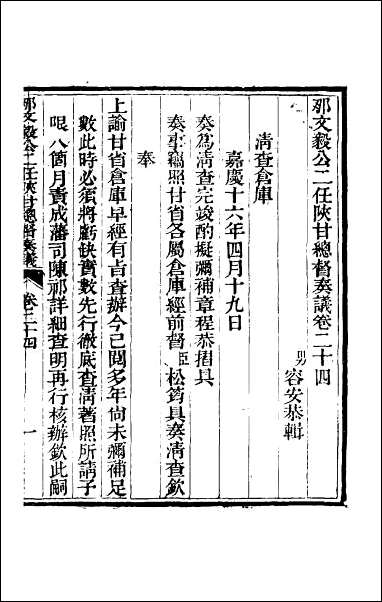 那文毅公二任陝甘總督奏議卷二十四
男容安恭輯
清查倉庫
嘉慶十六年四月十九日
奏爲清查完竣酌擬彌補章程恭摺具
奏事竊照甘省各屬倉庫經前督臣松筠具奏清查欽
奉
上諭甘省倉庫早經有旨查辦今已閱多年尙未彌補足
數此時必須將虧快實數先行徹底查淸著照所請予
限八箇月責成藩司陳祁詳細查明再行核辦欽此嗣
那文毅公二任陝甘總督奏議
卷二十四
一